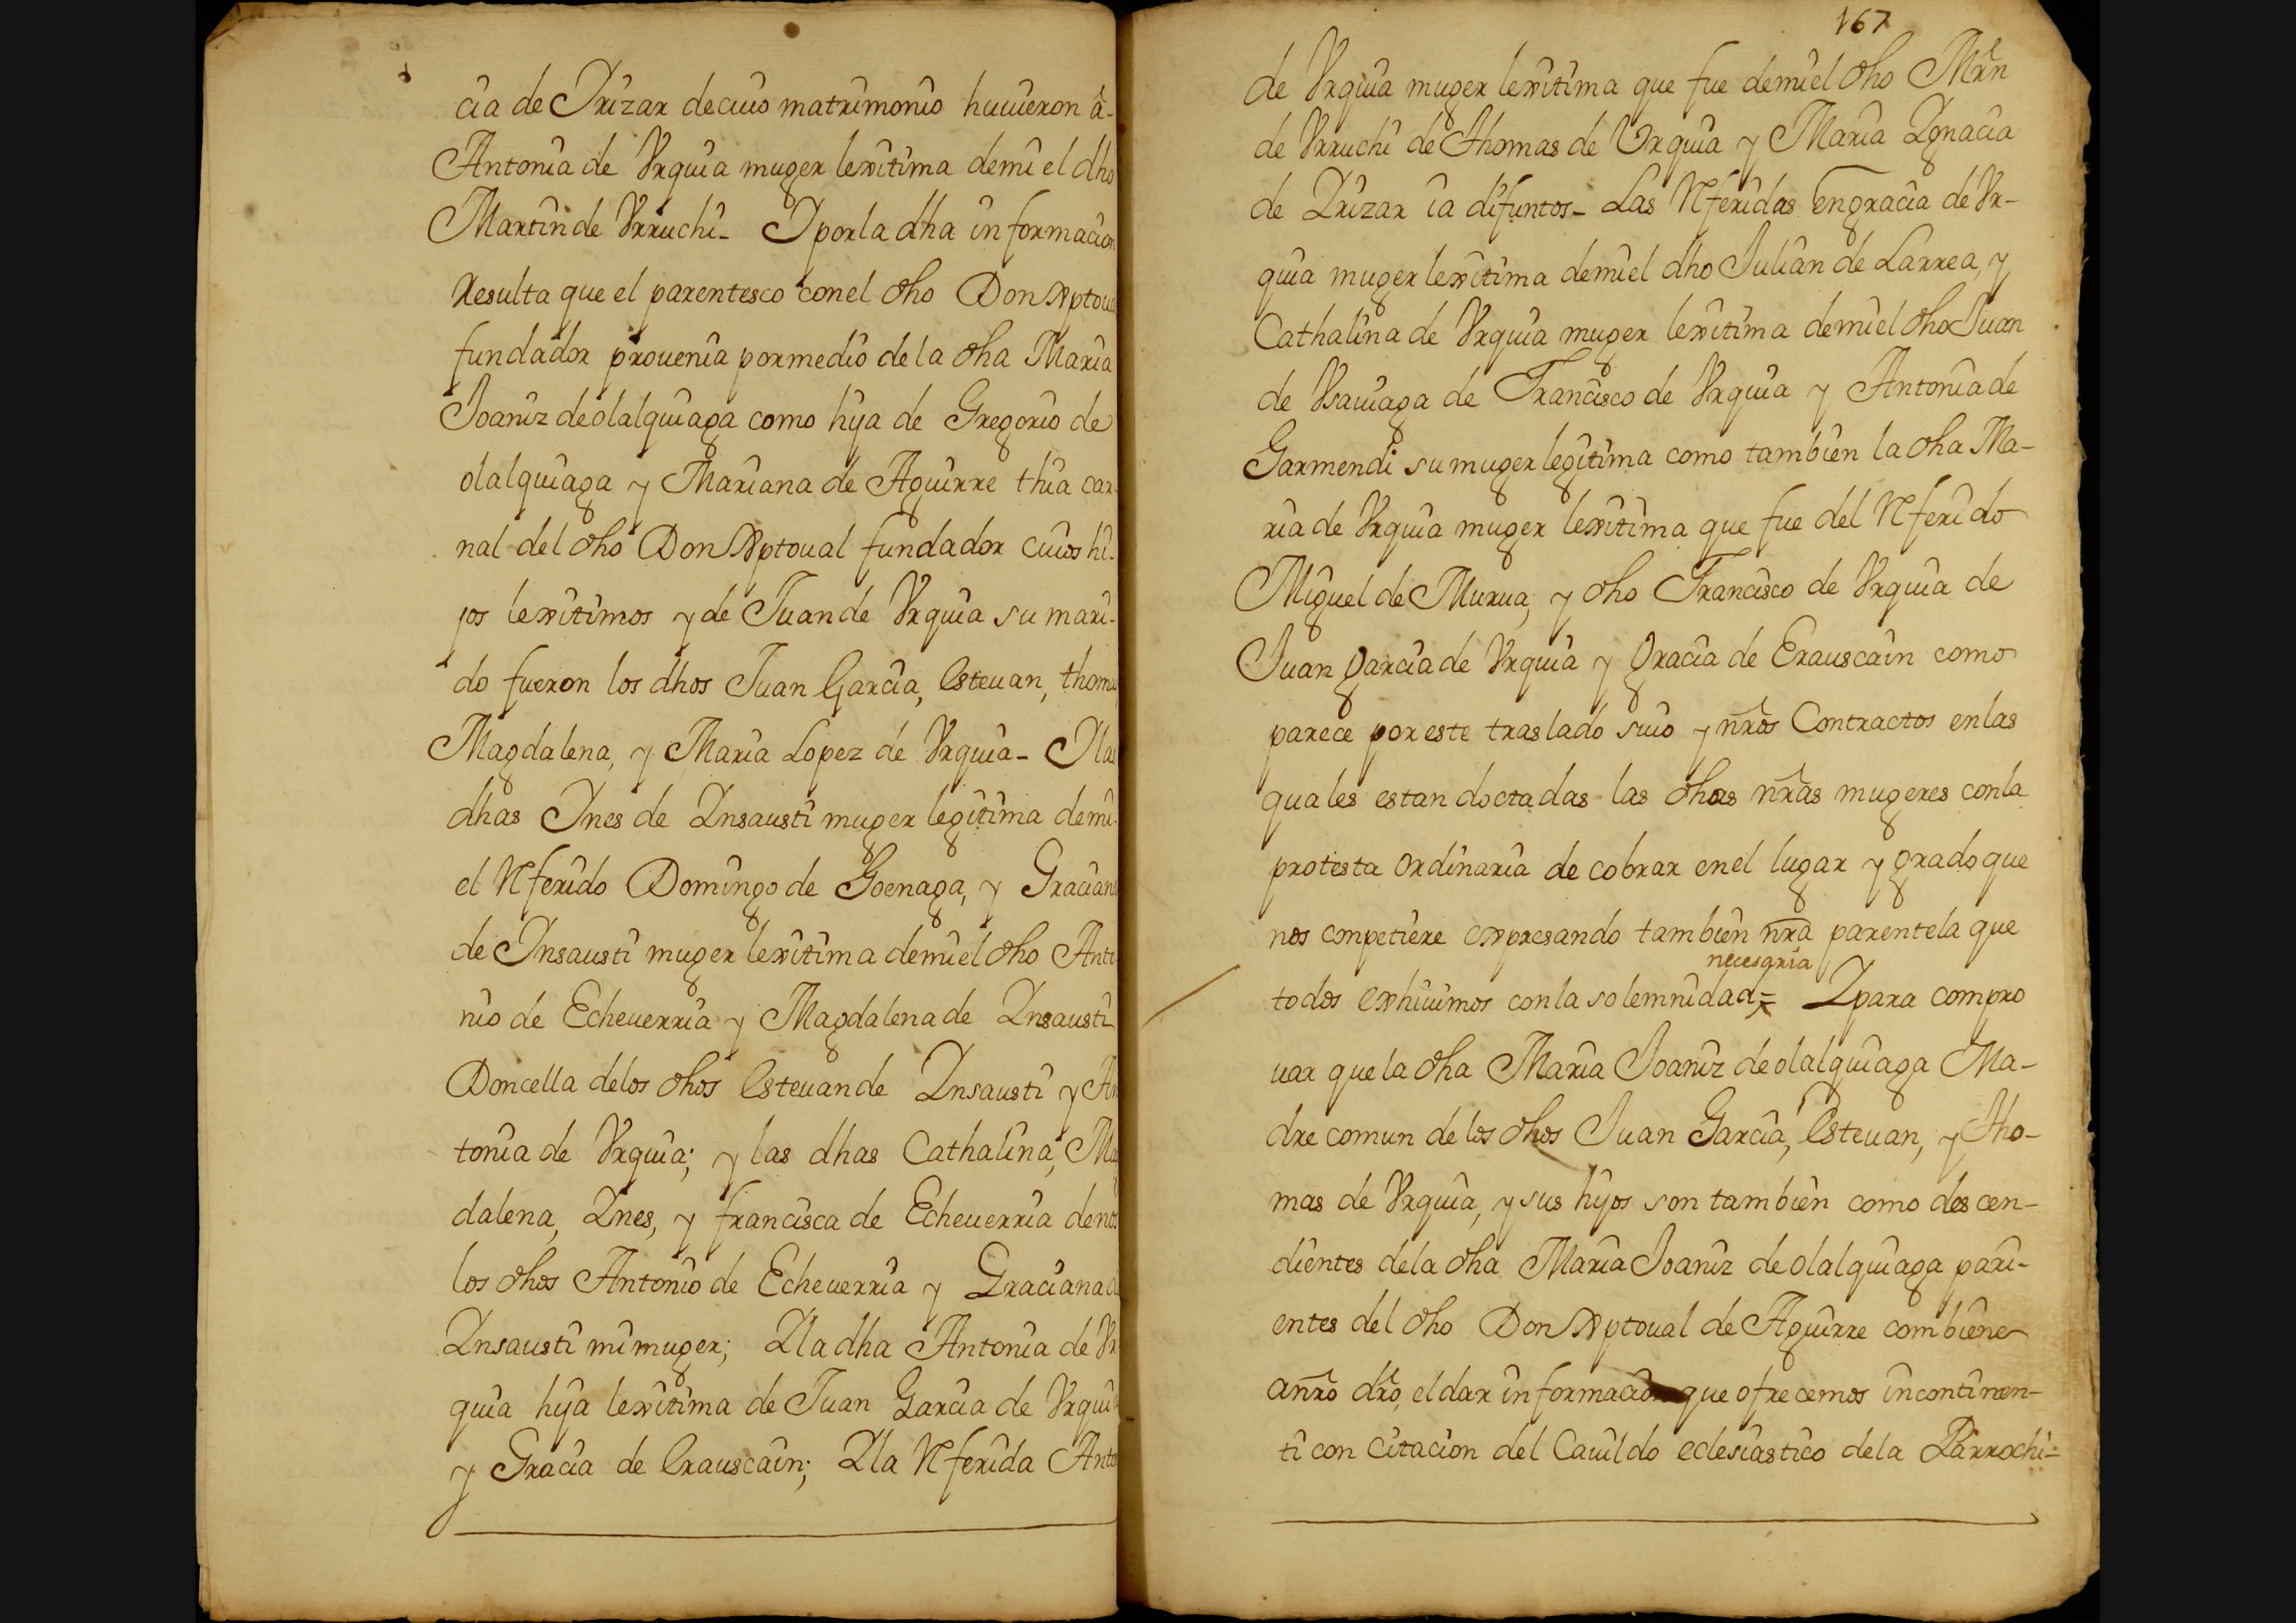 cia de Yrizar de cuio matrimonio huuieron â
Antonia de Vrquia muger lexitima de mi el dho
Martin de Vrruchi_ Y por la dha informacion
Resulta que el parentesco con el dho Don Xptoual
fundador prouenia por medio de la dha Maria
Joaniz de olalquiaga como hija de Gregorio de
olalquiaga y Mariana de Aguirre thia car
nal del dho Don Xptoual fundador cuios hi-
jos lexitimos y de Juan de Vrquia su mari-
do fueron los dhos Juan Garcia, Esteuan, thomas
Magdalena, y Maria Lopez de Vrquia_ Y las
dhas Ynes de Ynsausti muger legitima de mi
el Referido Domingo de Goenaga, y Graciana
de Ynsausti muger lexitima de mi el dho Anto
nio de Echeuerria y Magdalena de Ynsausti
Doncella de los dhos Esteuan de Ynsausti y An
tonia de Vrquia; y las dhas Cathalina, Mag
dalena, Ynes, y francisca de Echeuerria de nos
los dhos Antonio de Echeuerria y Graciana de
Ynsausti mi muger; Y la dha Antonia de Vr
quia hija lexitima de Juan Garcia de Vrquia
y Gracia de Erauscain; Y la Referida Anto
167
de Vrquia muger lexitima que fue de mi el dho Mrn
de Vrruchi de Thomas de Vrquia y Maria Ygnacia
de Yrizar ia difuntos_ Las Referidas Engracia de Vr-
quia muger lexitima de mi el dho Julian de Larrea, y
Cathalina de Vrquia muger lexitima de mi el dho Juan
de Vsauiaga de Francisco de Vrquia y Antonia de
Garmendi su muger legitima como tambien la dha Ma-
ria de Vrquia muger lexitima que fue del Referido
Miguel de Murua, y dho Francisco de Vrquia de
Juan garcia de Vrquia y gracia de Erauscain como
parece por este traslado suio y nros Contractos en las
quales estan doctadas las dhas nras mugeres con la
protesta ordinaria de cobrar en el lugar y grado que
nos competiere expresando tambien nra parentela que
necesaria
todos exhiuimos con la solemnidad= Y para compro
uar que la dha Maria Joaniz de olalquiaga Ma-
dre comun de los dhos Juan Garcia, Esteuan, y Tho-
mas de Vrquia, y sus hijos son tambien como descen-
dientes de la dha Maria Joaniz de olalquiaga pari-
entes del dho Don Xptoual de Aguirre combiene
a nro dro, el dar informacion que ofrecemos incontinen-
ti con Citacion del Cauildo eclesiastico de la Parrochi-